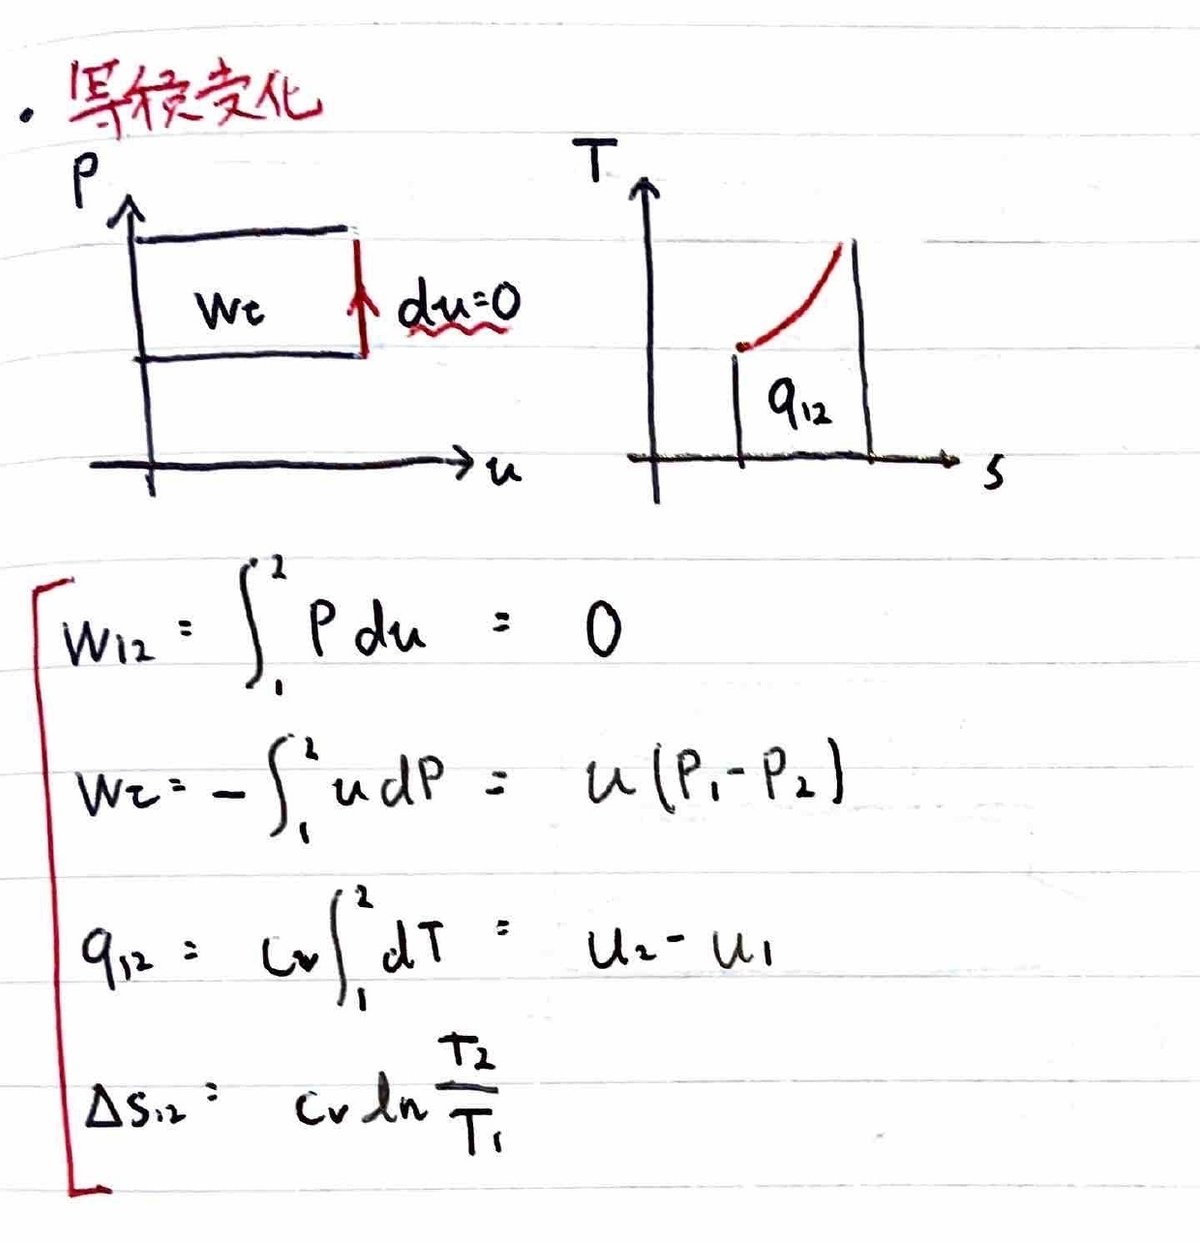 ・等積変化
P
T
Wt
du=0
q12
u
s
W12 = ∫₁² P du = 0
Wt = -∫₁² u dP = u(P1-P2)
q12 = Cv∫₁² dT = u2-u1
Δs12 = Cv ln T2/T1